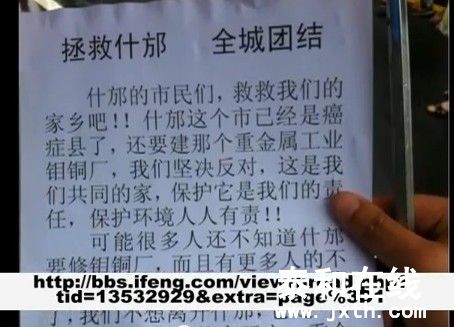 拯救什邡 全城团结
什邡的市民们，救救我们的
家乡吧!! 什邡这个市已经是癌
症县了，还要建那个重金属工业
钼铜厂，我们坚决反对，这是我
们共同的家，保护它是我们的责
任，保护环境人人有责!!
可能很多人还不知道什邡
要修钼铜厂，而且有更多人的不
http://bbs.ifeng.com/viewthread.php?
tid=13532929&extra=page%3D1
了，我们不想离开什邡，
泰和在线
www.jxth.com